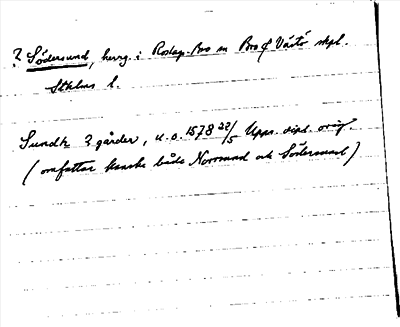 ? Södersund, herrg. i Roslags-Bro sn Bro & Väddö skpl.
Sthlms l.
Sundh 3 gårder, u.o. 1578 22/5 Upps. dipl. orig.
(omfattar kanske både Norrsund och Södersund)